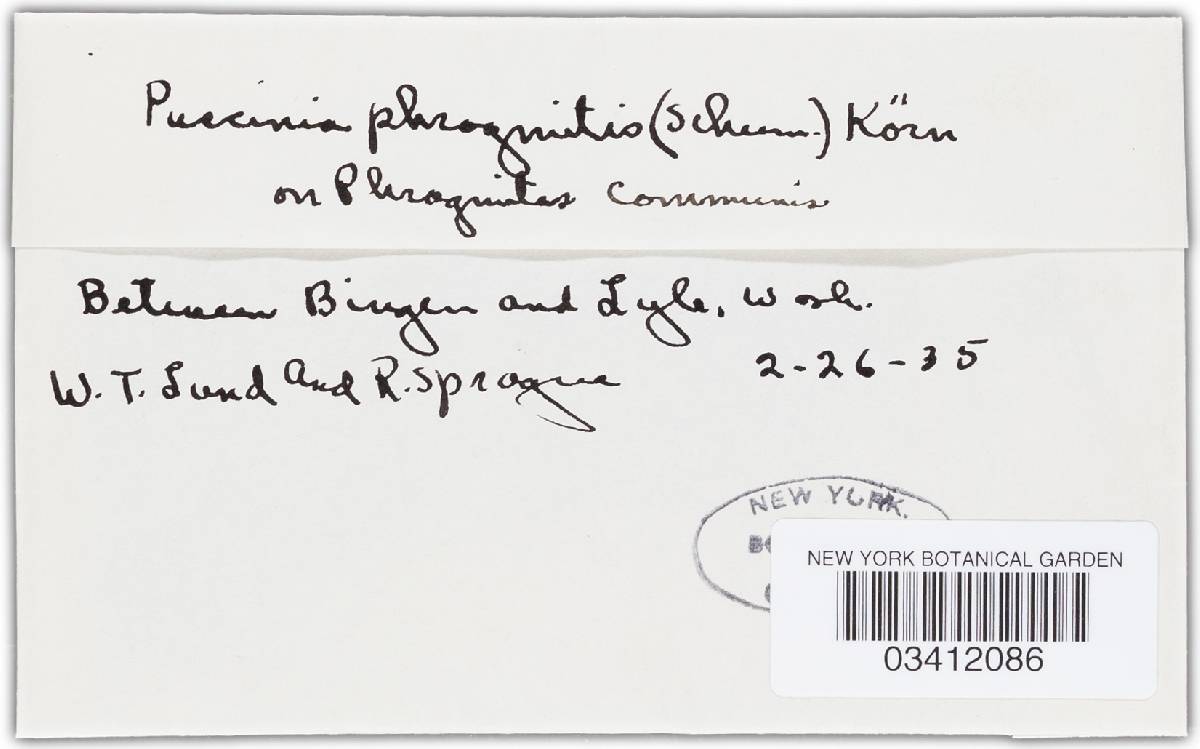 Puccinia phragmitis (Schum.) Körn
on Phragmites communis
Between Bingen and Lyle, Wash.
W. T. Lund and R. Sprague 2-26-35
NEW YORK
NEW YORK BOTANICAL GARDEN
03412086